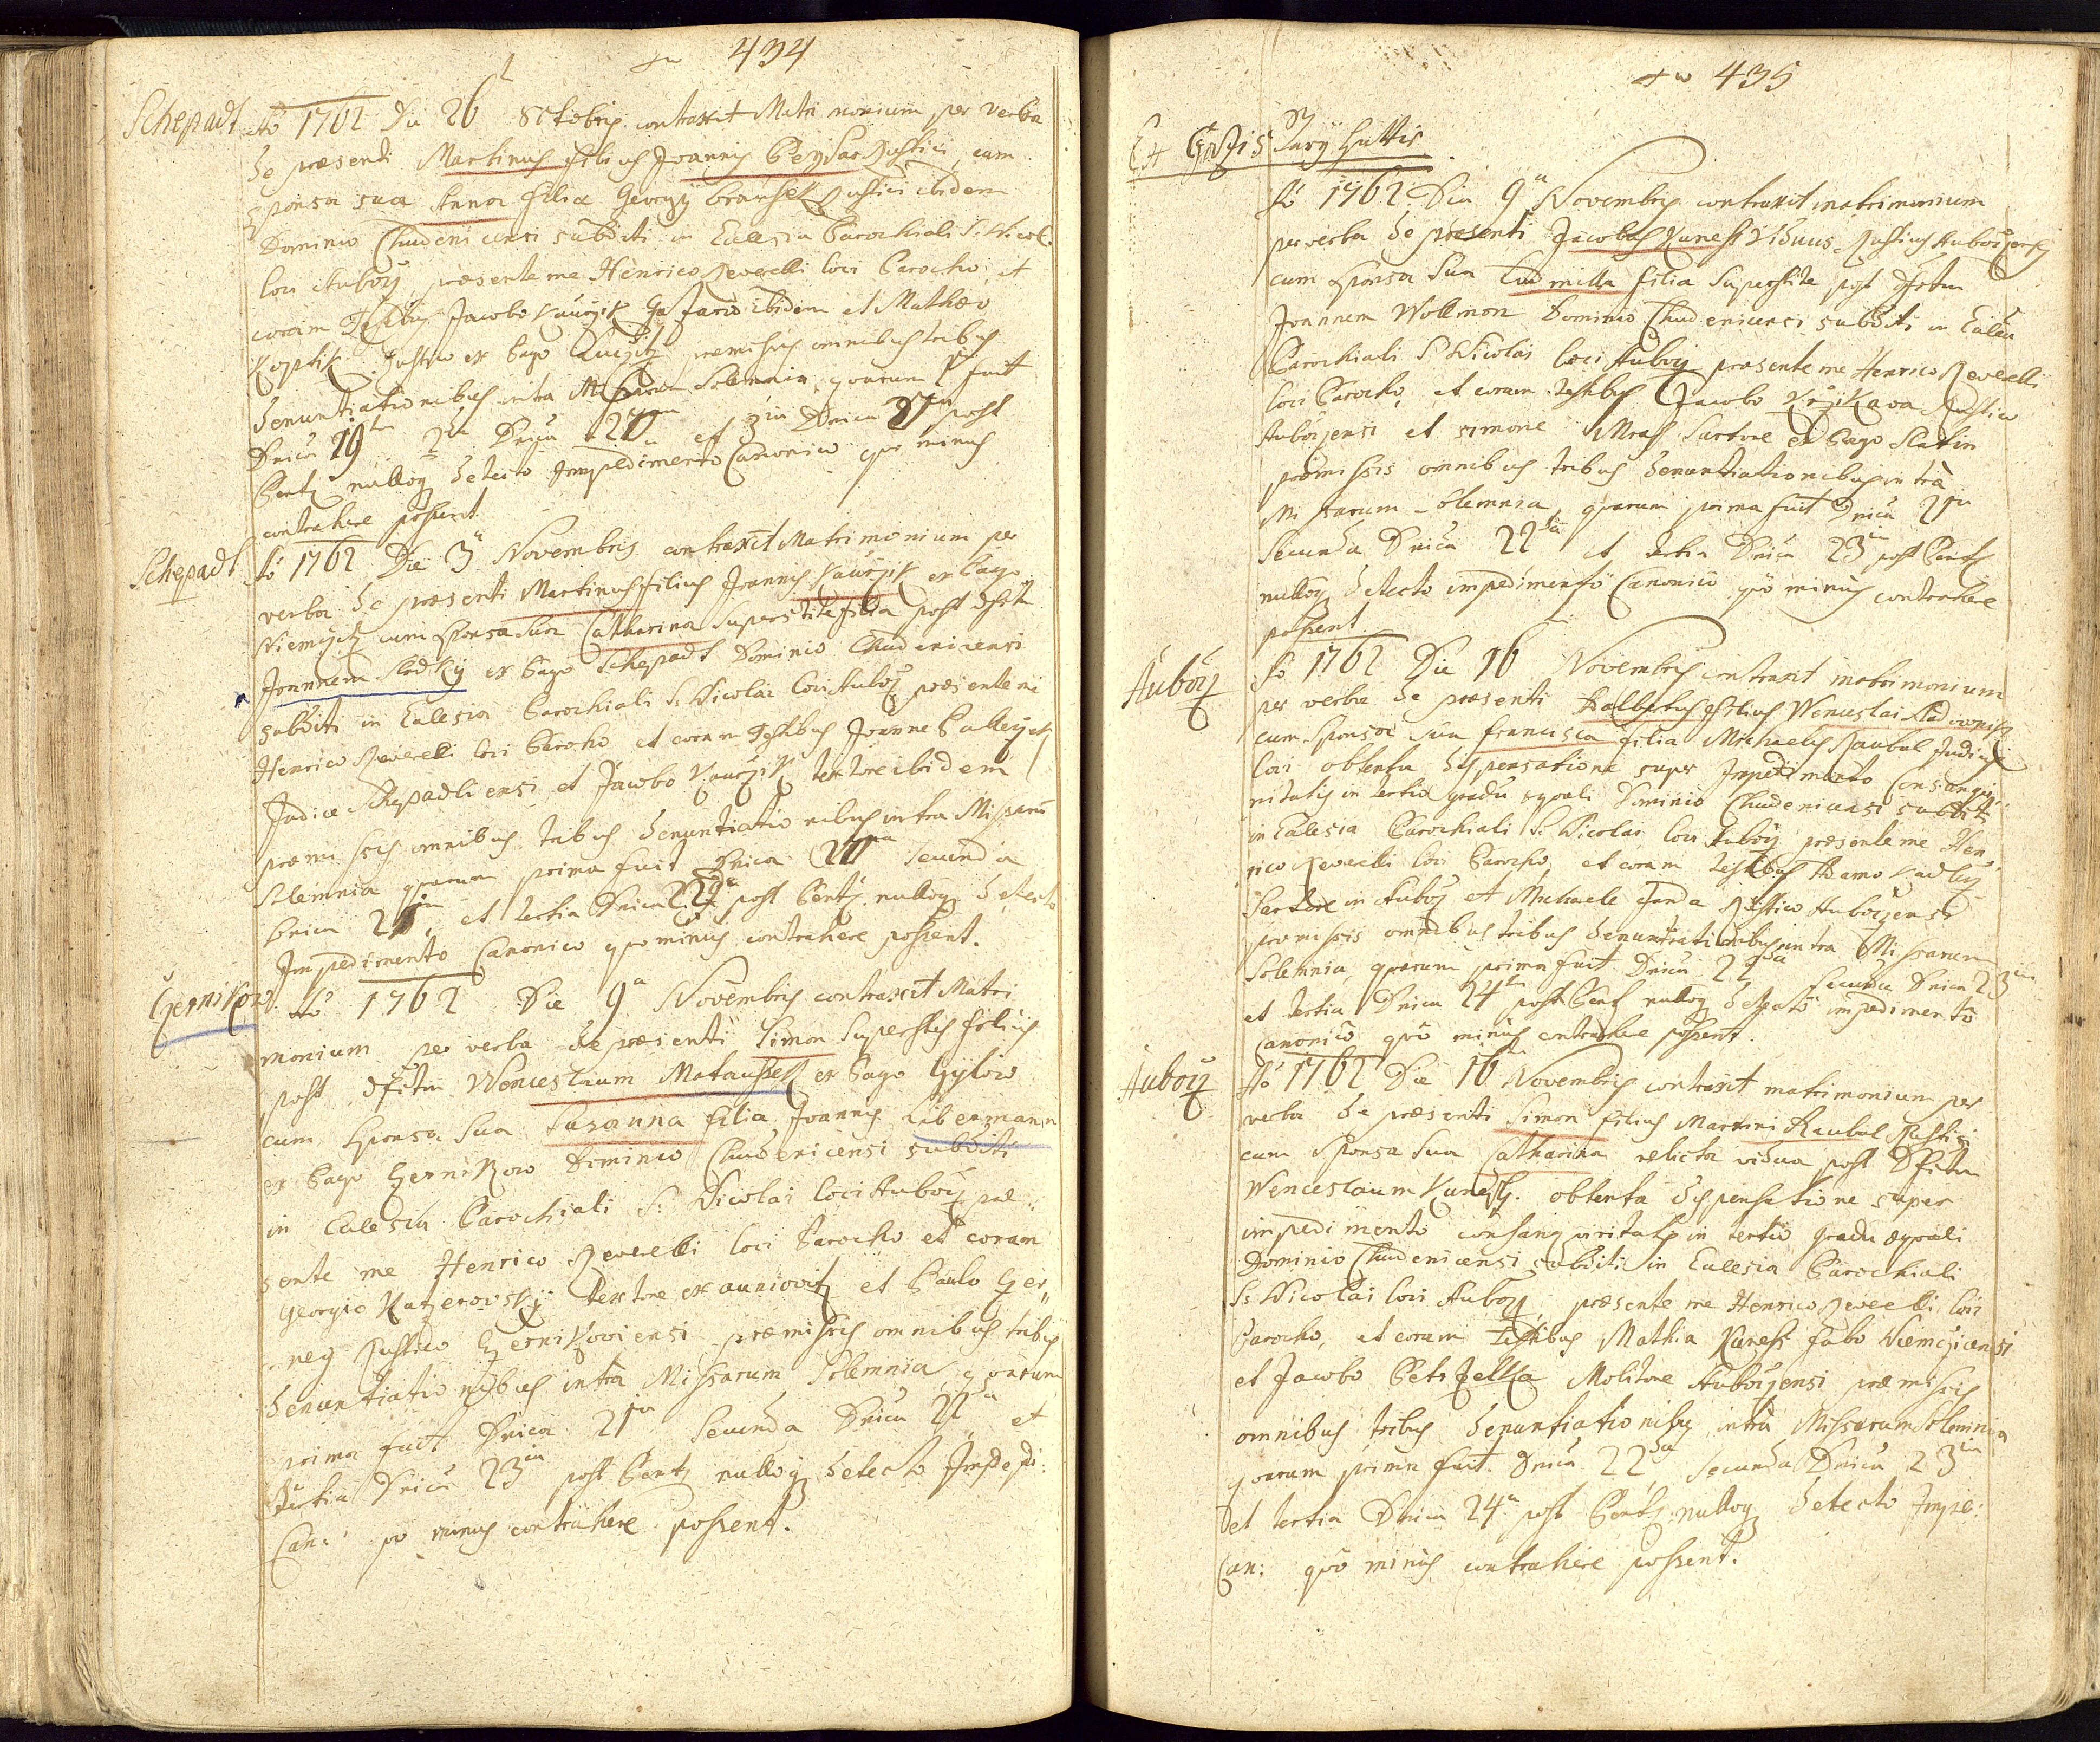 434
Schepadt Aô 1762 Die 26 8ctobris contraxit Matrimonium per verba
de præsenti Martinus filius Joannis Beysar Rustici, cum
sponsa sua Anna filia Georgÿ Branset Rustici ibidem
Dominio Chudenicensi subditi in Eulesia Parochiali S: Nicol:
loci Auborz præsente me Henrico Reverelli loci Parocho, et
coram Testibus Jacobo Kaurzik ibidem et Mathæo
Koptik Rustico ex Pago præmissis omnibus tribus
denuntiationibus intra Missarum Solemnia, quarum 1ª fuit
Dnica 19na 2da Dnica 20ma et 3tia Dnica 21ma post
Pent: nulloq detecto Impedimento Canonico quo minus
contrahere possent.
Schepadt Aô 1762 Die 3ª Novembris contraxit Matrimonium per
verba de præsenti Martinus filius Joannis Kaurzik ex Pago
Niemczitz cum sponsa sua Catharina superstite filia post dfctu
Joannem Sladky ex Pago Schepadt Dominio Chudenicensi
subditi in Eulesia Parochiali S: Nicolai loci Auborz præsente me
Henrico Reverelli loci Parocho et coram Testibus Joanne
Judice Schepadliensi et Jacobo Kaurzik textore ibidem
præmissis omnibus tribus denuntiationibus intra Missarum
Solemnia quarum prima fuit Dnica 20ma secunda
Dnica 21ma, et tertia Dnica 22da post Pent: nulloq detecto
Impedimento Canonico quo minus contrahere possent.
Czernikow Aô 1762 Die 9ª Novembris contraxit Matri
monium per verba de præsenti Simon superstes filius
post dfctum Wenceslaum Matausek ex Pago
cum sponsa sua Susanna filia Joannis Libermann
ex Pago Czernikow Dominio Chudenicensi subditi
in Eulesia Parochiali S: Nicolai loci Auborz præ
sente me Henrico Reverelli loci Parocho et coram
Georgio Katzerovsky textore ex auniowitz et Paulo Czer
ney Rustico Czernikoviensi præmissis omnibus tribus
denuntiationibus intra Missarum Solemnia, quarum
prima fuit Dnica 21ma secunda Dnica 22da et
tertia Dnica 23tia post Pent: nulloq detecto Impedi:
Can: quo minus contrahere possent.
435
Ex Casis
Aô 1762 Die 9ª Novembris contraxit matrimonium
per verba de præsenti Jacobus Kunesch Viduus Rusticus Auborzensis
cum sponsa sua Ludmilla filia superstite post dfctum
Joannem Wollmon Dominio Chudenicensi subditi in Eulesia
Parochiali S: Nicolai loci Auborz præsente me Henrico Reverelli
loci Parocho, et coram testibus Jacobo Krzikava Rustico
Auborzensi et Simone Mraß Sartore ex Pago Slatin
præmissis omnibus tribus denuntiationibus intra
Missarum Solemnia, quarum prima fuit Dnica 21ma
secunda Dnica 22da et tertia Dnica 23tia post Pent:
nulloq detecto impedimento Canonico quo minus contrahere
possent.
Auborz Aô 1762 Die 16 Novembris contraxit matrimonium
per verba de præsenti Adalbertus filius Wenceslai
cum sponsa sua Francisca filia Michaelis Raubal Judicis
loci obtenta dispensatione super Impedimento Consangvi
nitatis in tertio gradu æquali Dominio Chudenicensi subditi
in Eulesia Parochiali S: Nicolai loci Auborz præsente me Hen
rico Reverelli loci Parocho, et coram testibus Adamo Kadley
Sartore in Auborz et Michaele Janda Rustico Auborzensi
præmissis omnibus tribus denuntiationibus intra Missarum
Solemnia, quarum prima fuit Dnica 22da secunda Dnica 23tia
et tertia Dnica 24ta post Pent: nulloq detecto impedimento
canonico quo minus contrahere possent.
Auborz Aô 1762 Die 16 Novembris contraxit matrimonium per
verba de præsenti Simon filius Martini Raubal Rustici
cum sponsa sua Catharina relicta vidua post dfctum
Wenceslaum Kunesch. obtenta dispensatione super
impedimento consangvinitatis in tertio gradu æquali
Dominio Chudenicensi subditi in Eulesia Parochiali
S: Nicolai loci Auborz, præsente me Henrico Reverelli loci
Parocho, et coram testibus Mathia Kunesch fabro Niemczicensi
et Jacobo Petrzelka Molitore Auborzensi præmissis
omnibus tribus denuntiationibus intra Missarum Solemnia
quarum prima fuit Dnica 22da, secunda Dnica 23tia
et tertia Dnica 24ta post Pent: nulloq detecto Impe:
Can: quo minus contrahere possent.